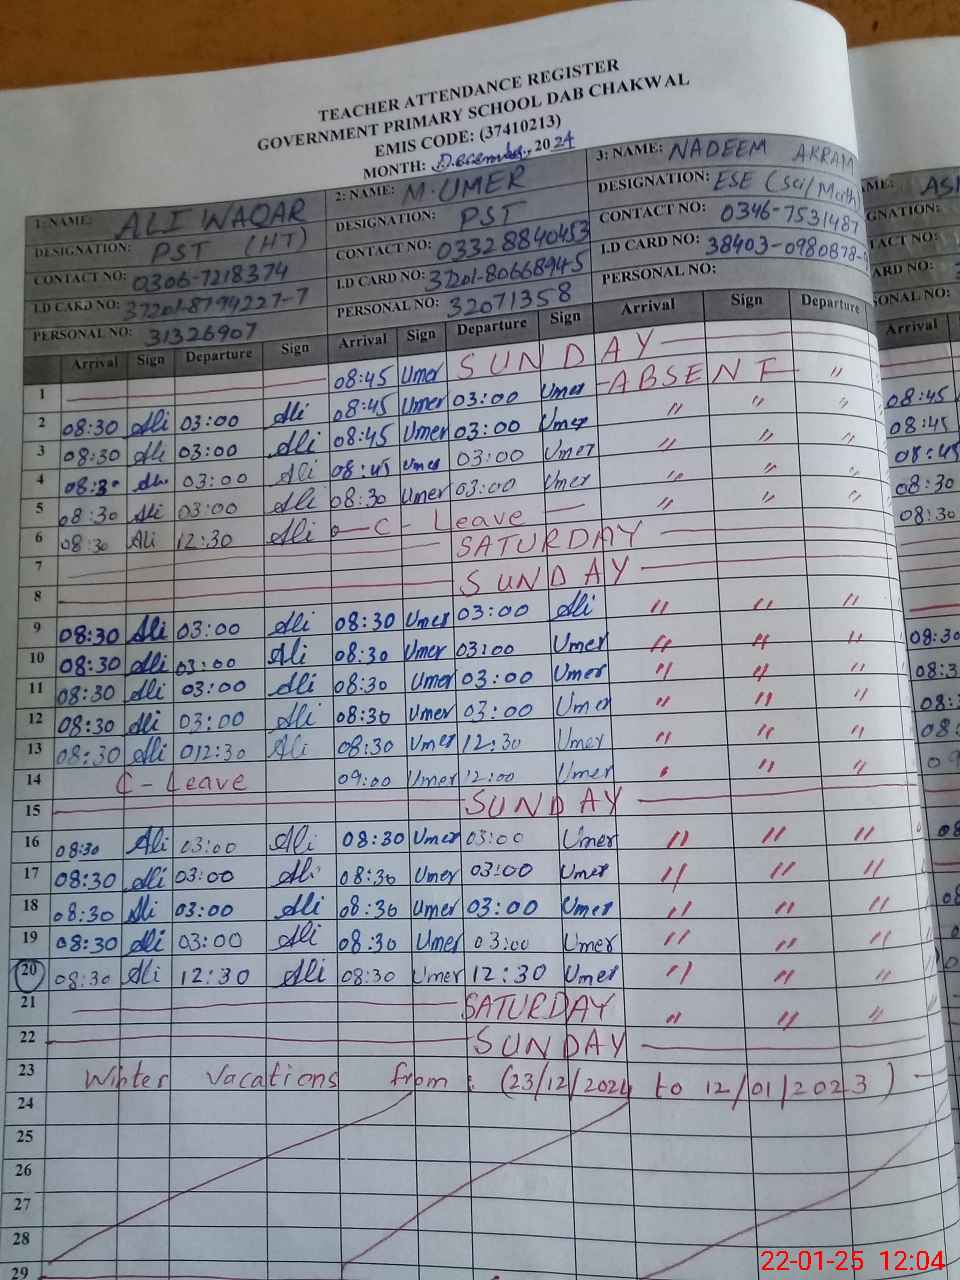 TEACHER ATTENDANCE REGISTER
GOVERNMENT PRIMARY SCHOOL DAB CHAKWAL
EMIS CODE: (37410213)
MONTH: December, 2024
1: NAME: ALI WAQAR 2: NAME: M·UMER 3: NAME: NADEEM AKRAM
DESIGNATION: PST (HT) DESIGNATION: PST DESIGNATION: ESE (Sci/Math)
CONTACT NO: 0306-7218374 CONTACT NO: 03328840453 CONTACT NO: 0346-7531487
I.D CARD NO: 37201-8794227-7 I.D CARD NO: 37201-80668945 I.D CARD NO: 38403-0980878-
PERSONAL NO: 31326907 PERSONAL NO: 32071358 PERSONAL NO:
Arrival Sign Departure Sign Arrival Sign Departure Sign Arrival Sign Departure Arrival
1 08:45 Umer SUNDAY
2 08:30 Ali 03:00 Ali 08:45 Umer 03:00 Umer ABSENT " 08:45
3 08:30 Ali 03:00 Ali 08:45 Umer 03:00 Umer " " " 08:45
4 08:30 Ali 03:00 Ali 08:45 Umer 03:00 Umer " " " 08:45
5 08:30 Ali 03:00 Ali 08:30 Umer 03:00 Umer " " " 08:30
6 08:30 Ali 12:30 Ali C - Leave " " " 08:30
7 SATURDAY
8 SUNDAY
9 08:30 Ali 03:00 Ali 08:30 Umer 03:00 Ali " " "
10 08:30 Ali 03:00 Ali 08:30 Umer 03:00 Umer " " " 08:30
11 08:30 Ali 03:00 Ali 08:30 Umer 03:00 Umer " " "
12 08:30 Ali 03:00 Ali 08:30 Umer 03:00 Umer " " "
13 08:30 Ali 012:30 Ali 08:30 Umer 12:30 Umer " " "
14 C - Leave 09:00 Umer 12:00 Umer " " "
15 SUNDAY
16 08:30 Ali 03:00 Ali 08:30 Umer 03:00 Umer " " "
17 08:30 Ali 03:00 Ali 08:30 Umer 03:00 Umer " " "
18 08:30 Ali 03:00 Ali 08:30 Umer 03:00 Umer " " "
19 08:30 Ali 03:00 Ali 08:30 Umer 03:00 Umer " " "
20 08:30 Ali 12:30 Ali 08:30 Umer 12:30 Umer " " "
21 SATURDAY " " "
22 SUNDAY
23 Winter Vacations from: (23/12/2024 to 12/01/2023)
24
25
26
27
28
29
22-01-25 12:04